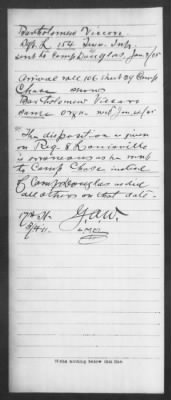 Bartholomew Vixson
Pvt. K 154 Tenn. Inf.
sent to Camp Douglas, Jan 2/65
Arrival roll 106 sheet 6 Camp
Chase shows
Bartholomew
same orgn.
The disposition as given
on Reg. 8 Louisville
is erroneous as he went
to Camp Chase instead
of Camp Douglas as did
all others on that date.
G.A.W.
Write nothing below this line.